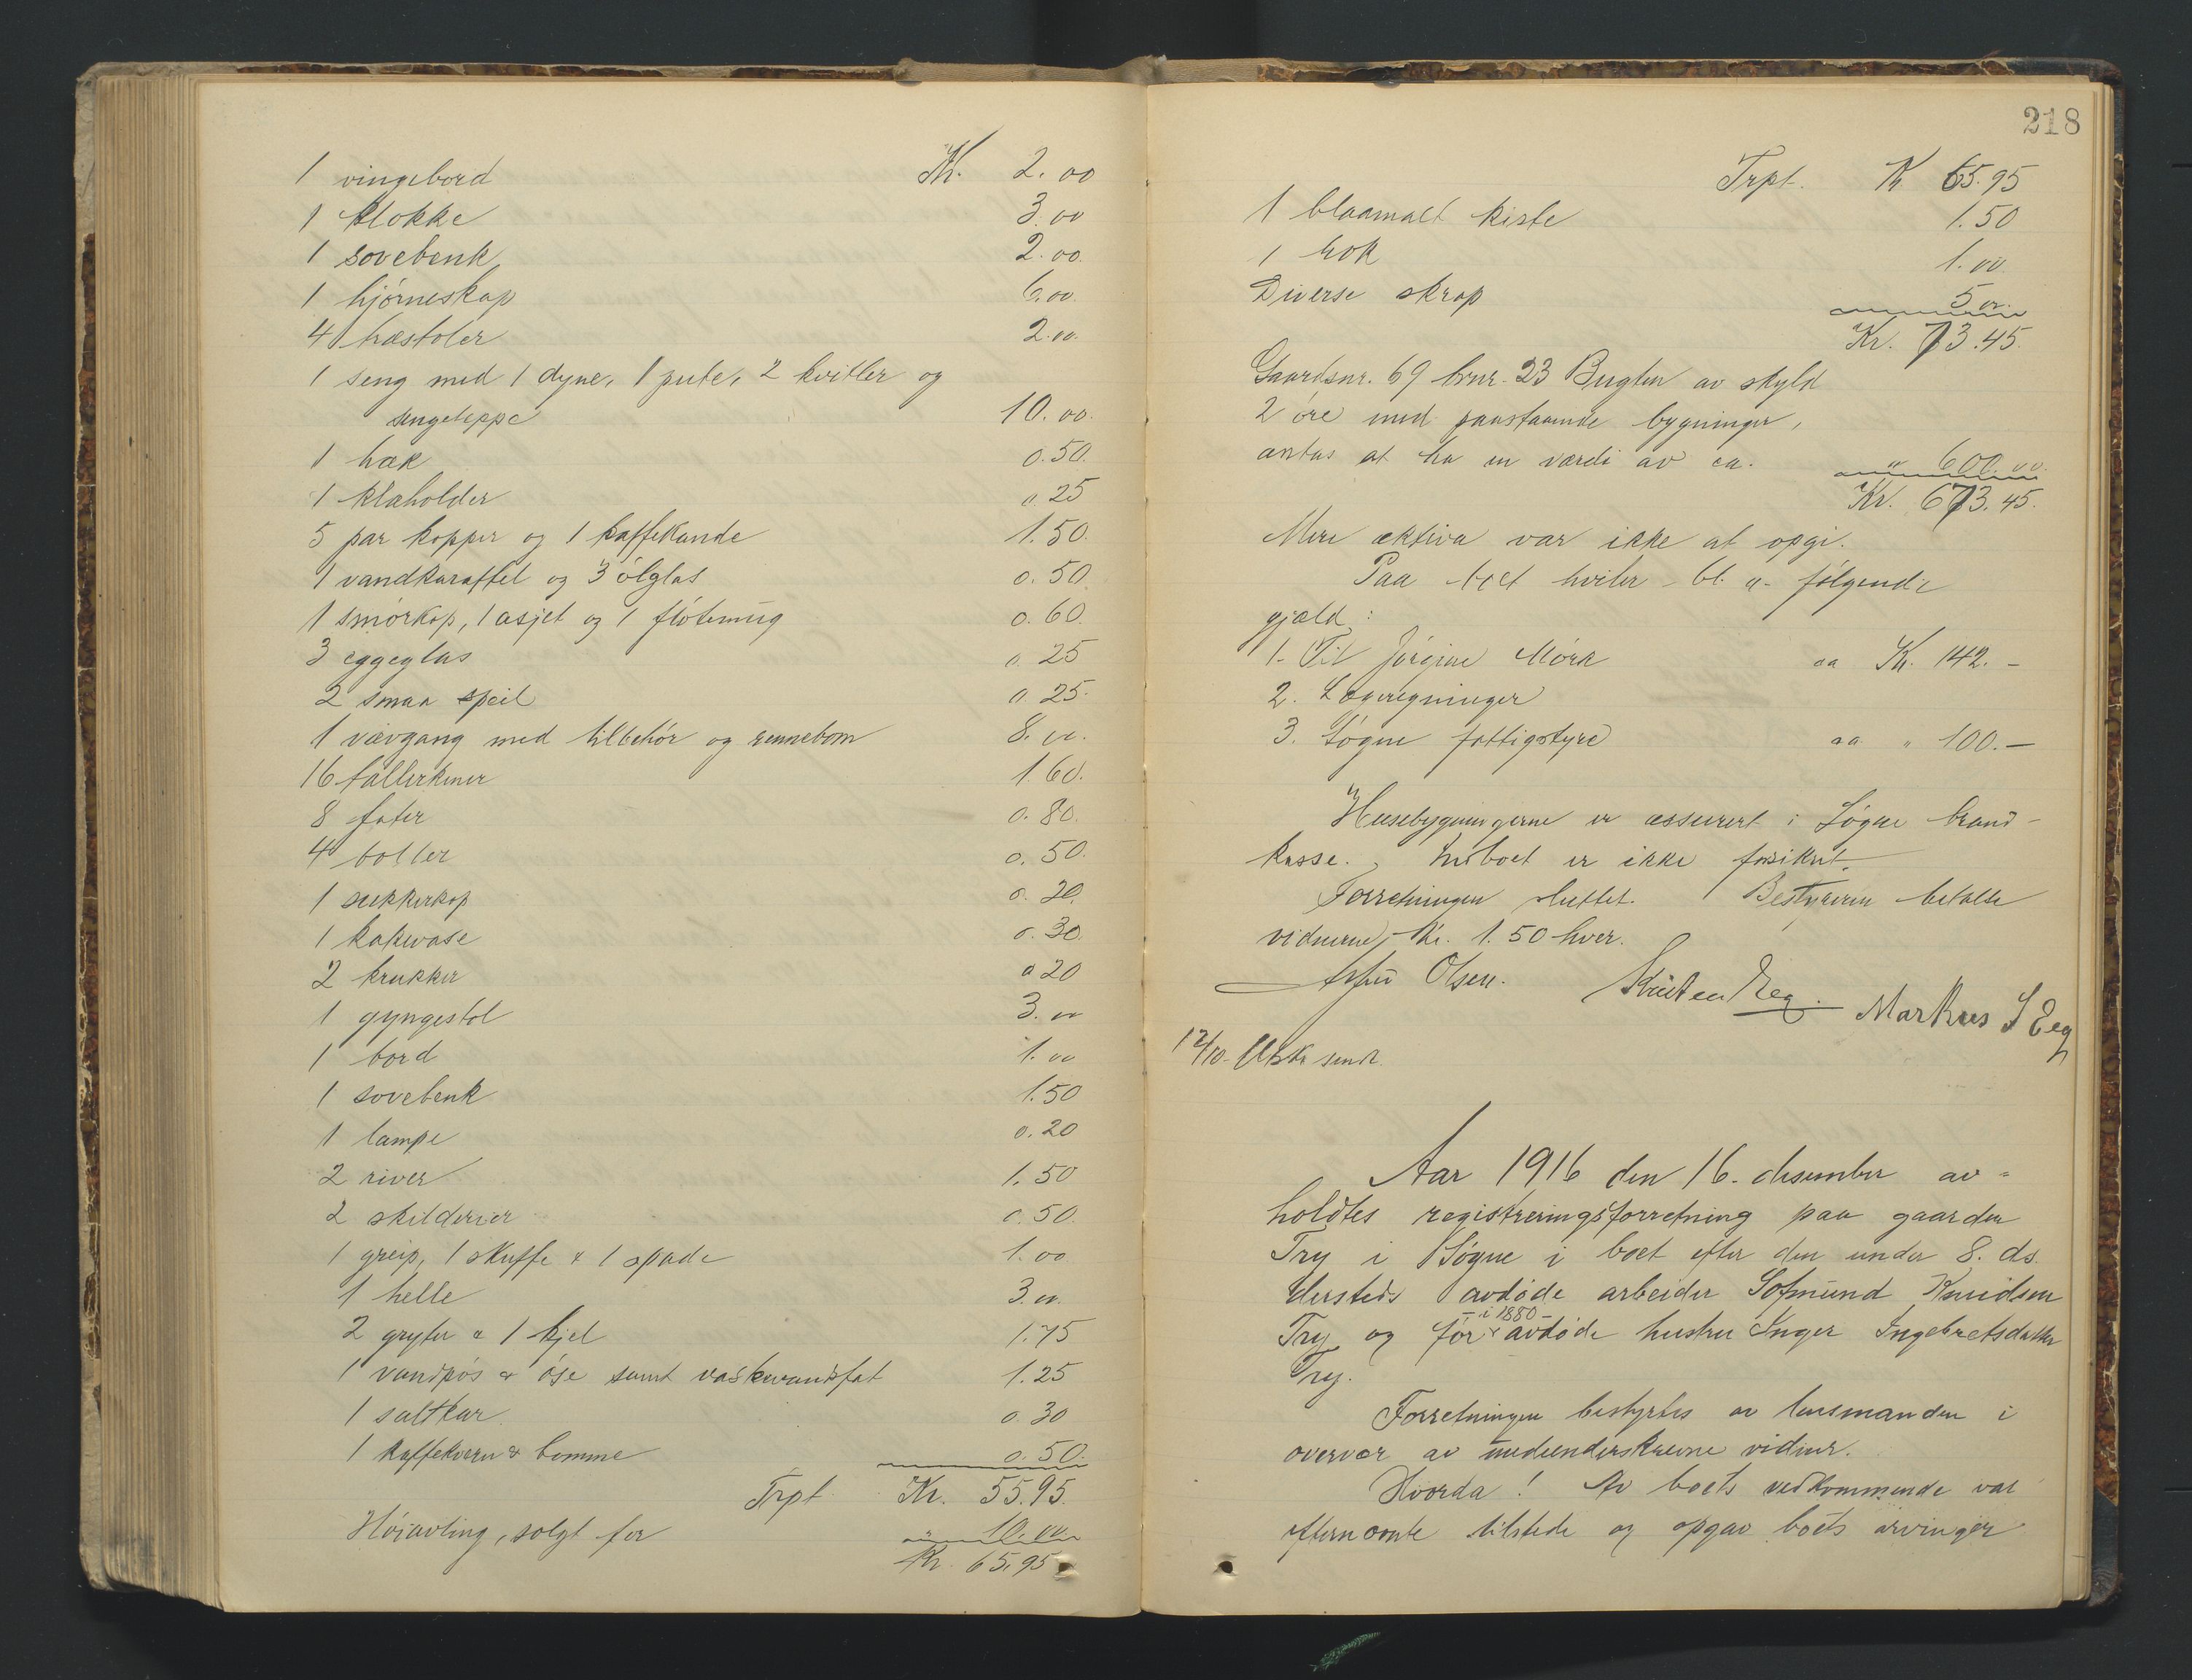 1 vingebord Kr. 2.00
1 klokke 3.00
1 sovebenk 2.00.
1 hjørneskap 6.00
4 træstoler 2.00.
1 seng med 1 dyne, 1 pute, 2 kvitler og
sengeteppe 10.00.
1 hæk 0.50.
1 klæholder 0.25
5 par kopper og 1 kaffekande 1.50.
1 vandkaraffel og 3 ølglas 0.50.
1 smørkop, 1 asjet og 1 fløtemug 0.60.
3 eggeglas 0.25
2 smaa speil 0.25.
1 vævgang med tilbehør og rennebom 8.00.
16 tallerkener 1.60.
8 fater 0.80.
4 boller 0.50.
1 sukkerkop 0.20.
1 kakevase 0.30.
2 krukker 0.20
1 gyngestol 3.00
1 bord 1.00
1 sovebenk 1.50
1 lampe 0.20
2 river 1.50
2 skilderier 0.50
1 greip, 1 skuffe & 1 spade 1.00
1 helle 3.00.
2 gryter & 1 kjel 1.75
1 vandpøs & øse samt vaskevandsfat 1.25
1 saltkar 0.30
1 kaffekvern & bomme 0.50.
Trpt. Kr. 55.95.
Høiavling, solgt for " 10.00
Kr. 65.95
218
Trpt. Kr 65.95
1 blaamalt kiste 1.50
1 rok 1.00
Diverse skrap 5 00.
Kr. 73.45.
Gaardsnr. 69 brnr. 23 Bugten av skyld
2 øre med paastaaende bygninger,
antas at ha en værdi av ca. " 600.00.
Kr. 673.45.
Mere aktiva var ikke at opgi.
Paa boet hviler bl. a. følgende
gjæld:
1. Til Jørgine Mørk ca Kr. 142. –
2. Lægeregninger
3. Søgne fattigstyre ca " 100. –
Husebygningerne er assurert i Søgne brand-
kasse. Indboet er ikke forsikret.
Forretningen sluttet. Bestyreren betalte
vidnerne Kr. 1.50 hver.
Olsen. Kristen Eeg. Markus S Eeg
12/10. Utskr sendt.
Aar 1916 den 16. desember av-
holdtes registreringsforretning paa gaarden
Try i Søgne i boet efter den under 8. ds.
dersteds avdøde arbeider Sofmund Knudsen
Try og før - i 1880 - avdøde hustru Inger Ingebretsdatter
Try.
Forretningen bestyrtes av lensmanden i
overvær av medunderskrevne vidner.
Hvorda! Av boets vedkommende var
efternævnte tilstede og opgav boets arvinger